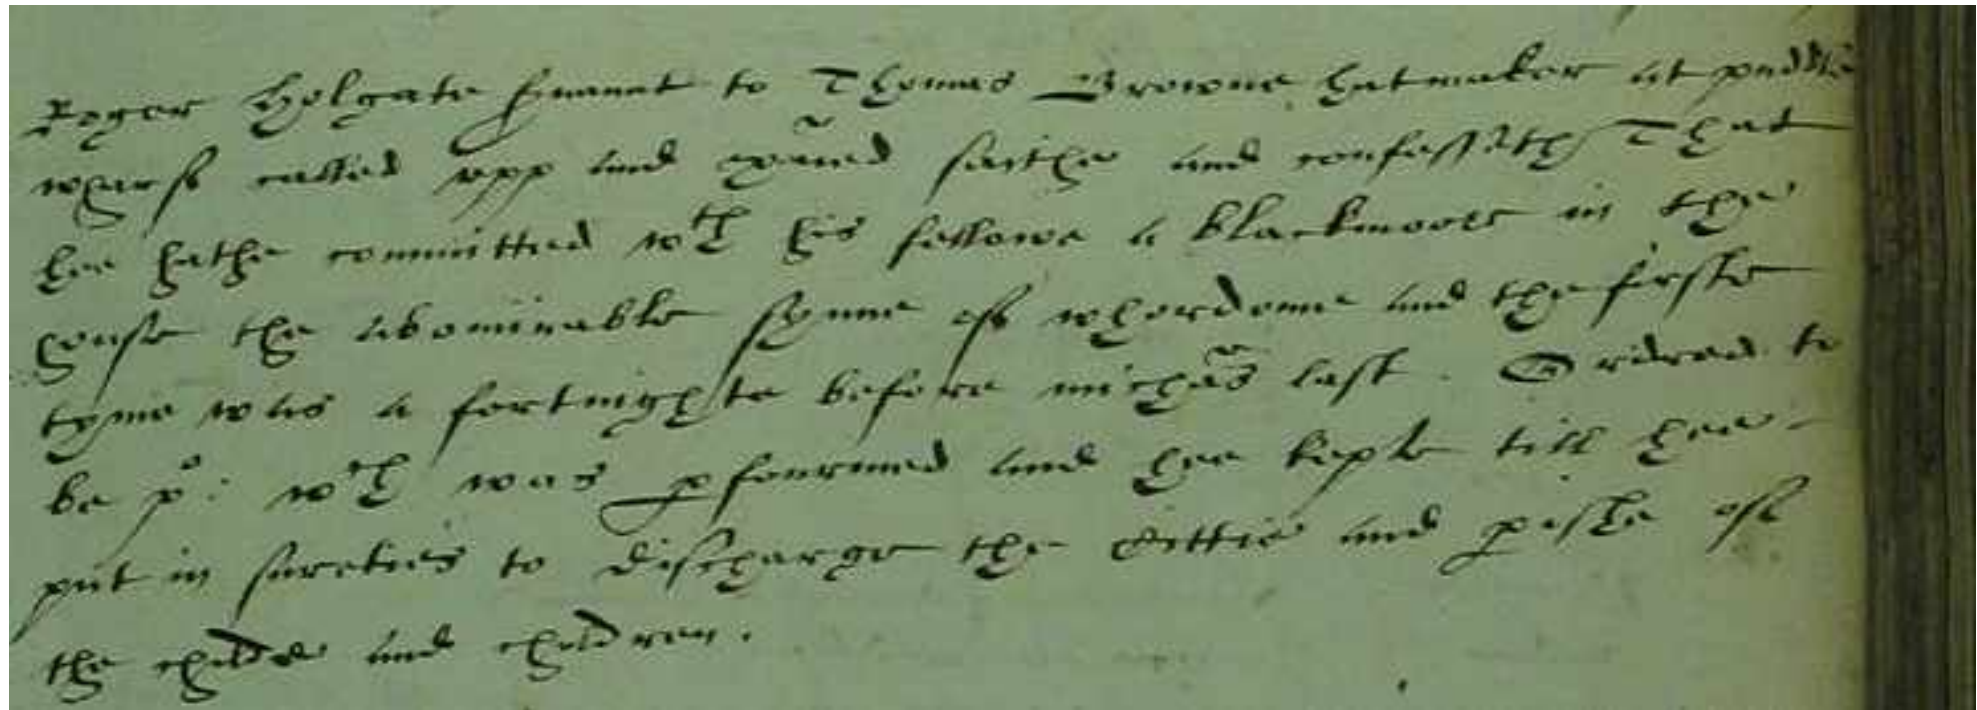 Roger Holgate s'vaunt to Thomas Browne hatmaker at puddle
wharfe called vpp and exãied saithe and confessethe That
hee hathe committed wth his fellowe a blackmoore in the
house the abominable synne off whordome and the firste
tyme was a fortnighte before michãs last. Ordred to
be po: wch was pfourmed and hee kepte till hee
put in sureties to discharge the Cittie and pishe off
the childe and children.